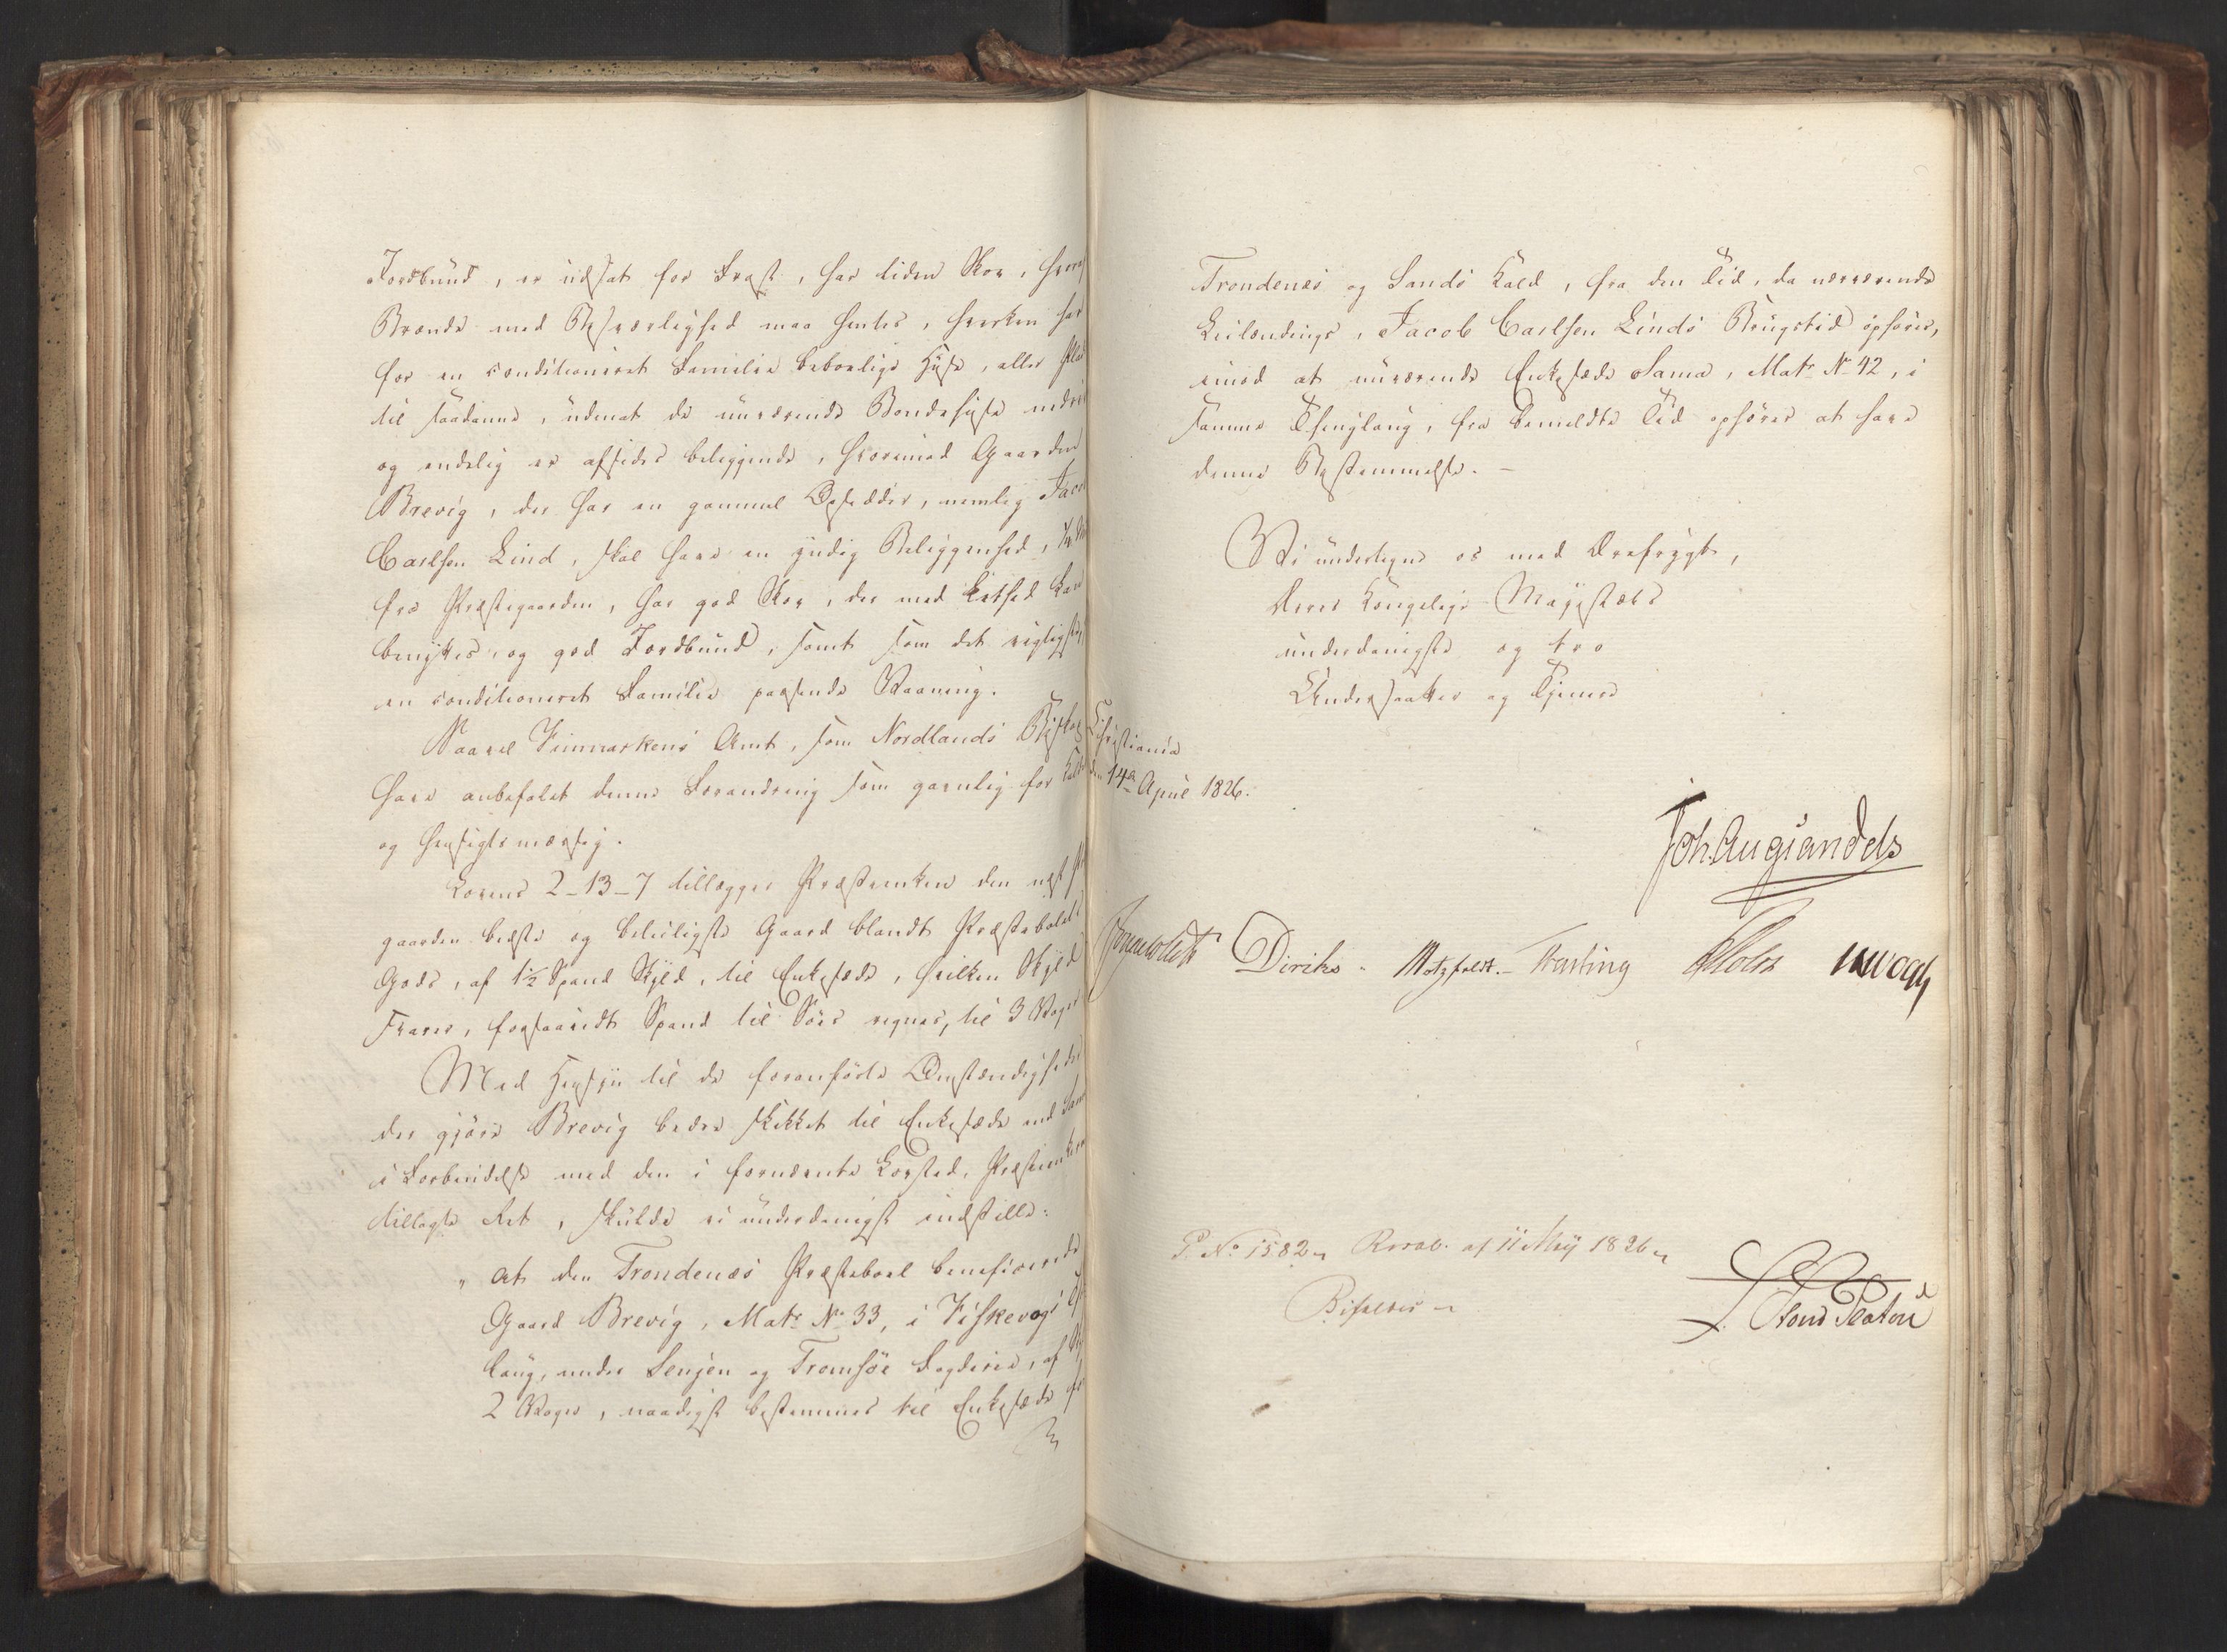 Jordbund, er udsat for Frost, har liden Skov, hvoraf
Brænde med Besværlighed maa hentes, hverken har
for en conditioneret Familie beboelige Huse, eller Plads
til saadanne, uden at de nuværende Bondehuse nedrives
og endelig er afsides beliggende, hvorimod Gaarden
Brevig, der har en gammel Opsidder, nemlig Jacob
Carlsen Lind, skal have en yndig Beliggenhed, 1/4
fra Præstegaarden, har god Skov, der med Lethed kan
benyttes, og god Jordbund, samt som det vigtigste
en conditioneret Familie passende Vaaning.
Saavel Finmarkens Amt, som Nordlands Biskop
have anbefalet denne Forandring som gavnlig for Kaldet
og hensigtsmæssig.
Lovens 2-13-7 tillægger Præsteenken den næst
gaarden bedste og beleiligste Gaard blandt Præstebolets
Gods, af 1 1/2 Spand Skyld, til Enkesæde, hvilken Skyld
svarer, forsaavidt Spand til Vœr regnes, til 3 Voger
Med Hensyn til de foranførte Omstændigheder
der gjøre Brevig bedre skikket til Enkesæde end Sama
i Forbindelse med den i fornævnte Lovsted, Præsteenken
tillagte Ret, skulde vi underdanigst indstille:
" at den Trondenæs Præsteboel beneficerede
Gaard Brevig, Matr No 33, i Fiskevogs
laug, under Senjen og Tromsøe Fogderie, af
2 Voger, naadigst bestemmes til Enkesæde for
Trondenæs og Sands Kald, fra den Tid, da nærværende
Leilændings, Jacob Carlsen Linds Brugstid ophører,
imod at nuværende Enkesæde Sama, Matr No 42, i
samme Thinglaug, fra bemeldte Tid ophører at have
denne Bestemmelse. -
Vi undertegne os med Ærefrygt,
Deres Kongelige Majestæts
underdanigste og tro
Undersaatter og Tjenere
Christiania
den 14de April 1826.
Joh. Aug Sandels
Sommerhielm Diriks Motzfeldt. Fasting Holst JHVogt
P. No 1582 Resol. af 11 May 1826
Bifaldes
S. Løvenskiold